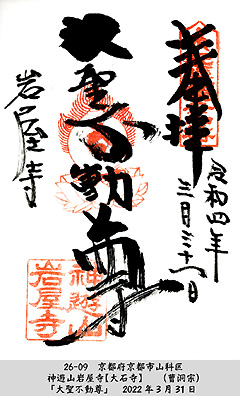 奉拝
令和四年
三月三十一日
大聖不動尊
岩屋寺
神遊山
岩屋寺
26-09　京都府京都市山科区
神遊山岩屋寺【大石寺】　（曹洞宗）
「大聖不動尊」　2022年3月31日